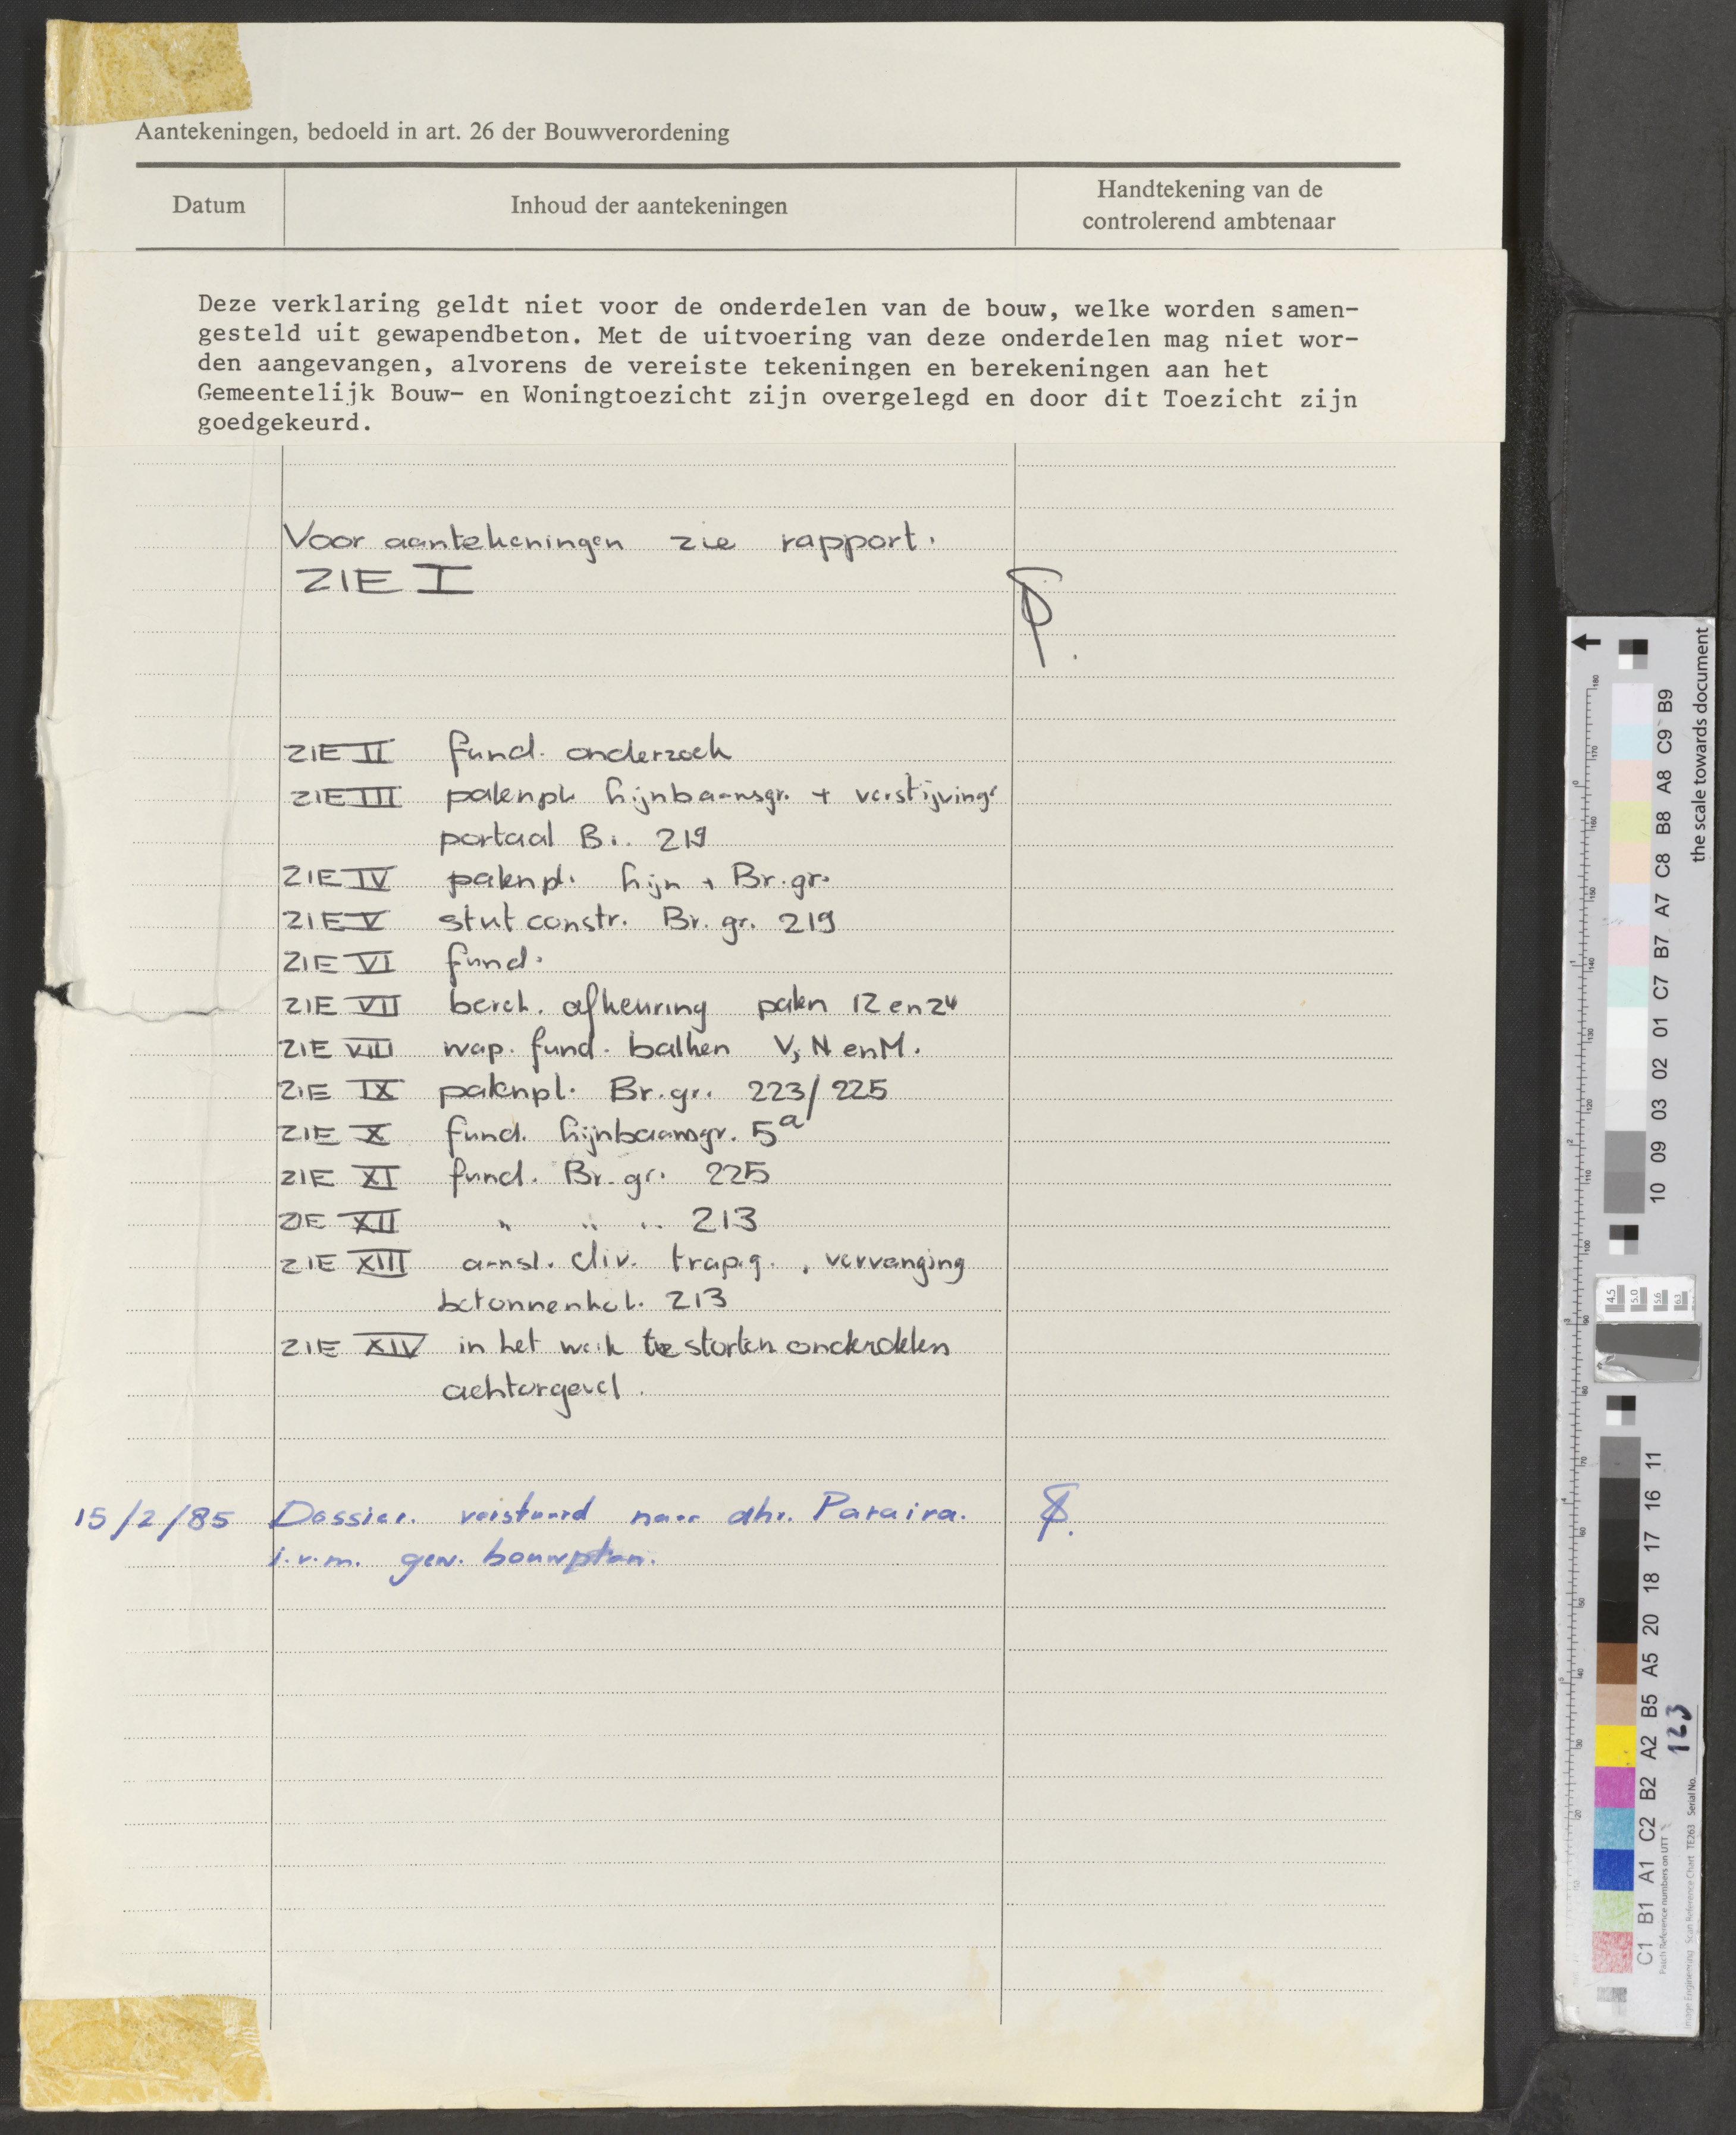 Aantekeningen, bedoeld in art. 26 der Bouwverordening
Datum
Inhoud der aantekeningen
Handtekening van de
controlerend ambtenaar
Deze verklaring geldt niet voor de onderdelen van de bouw, welke worden samen-
gesteld uit gewapendbeton. Met de uitvoering van deze onderdelen mag niet wor-
den aangevangen, alvorens de vereiste tekeningen en berekeningen aan het
Gemeentelijk Bouw- en Woningtoezicht zijn overgelegd en door dit Toezicht zijn
goedgekeurd.
Voor aantekeningen zie rapport.
ZIE I
ZIE II fund. onderzoek
ZIE III palenpl. Lijnbaansgr. + verstijvings
portaal B.. 219
ZIE IV palenpl. Lijn + Br.gr.
ZIE V stut constr. Br. gr. 219
ZIE VI fund.
ZIE VII berek. afkeuring palen 12 en 24
ZIE VIII wap. fund. balken V, N en M.
ZIE IX palenpl. Br.gr. 223/225
ZIE X fund. Lijnbaansgr. 5a
ZIE XI fund. Br. gr. 225
ZIE XII " " " 213
ZIE XIII aansl. div. trap.g. , vervanging
betonnenkol. 213
ZIE XIV in het werk te storten onderdelen
achtergevel.
15/2/85 Dossier. verstuurd naar dhr. Paraira.
i.v.m. gew. bouwplan.
the scale towards document
B9
C9
A8
B8
C8
A7
B7
C7
01
02
03
09
10
11
16
17
18
20
A5
B5
A2
B2
C2
A1
B1
C1
123
Patch Reference numbers on UTT
Image Engineering Scan Reference Chart TE263 Serial No.